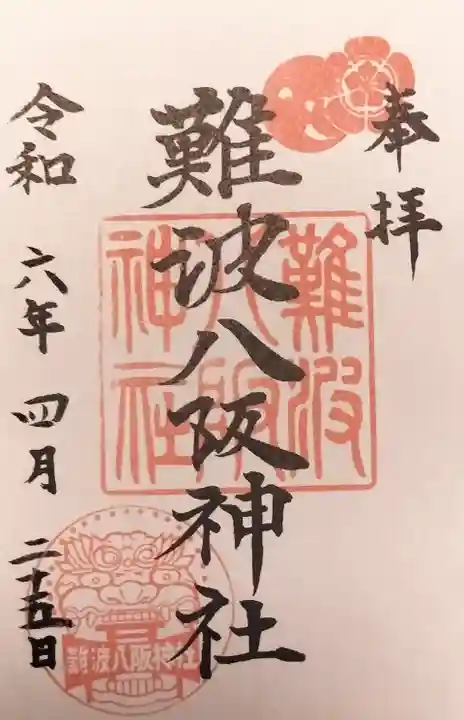 奉拝
難波八阪神社
難波八阪神社
令和 六年 四月 二十五日
難波八阪神社